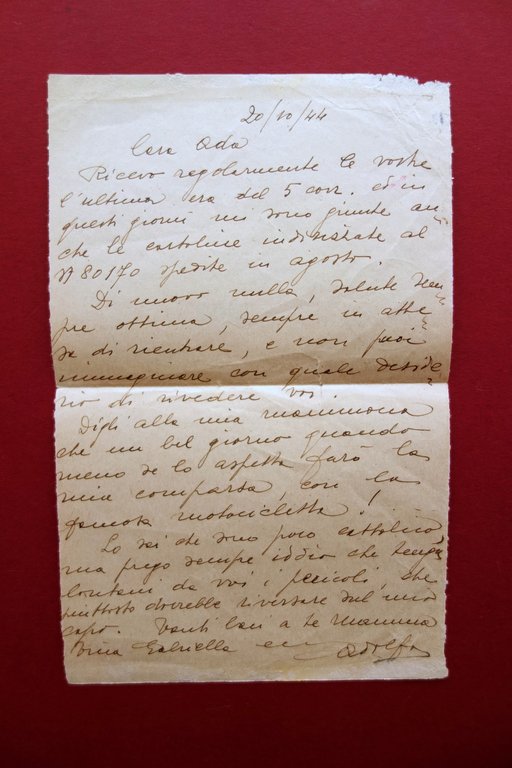 20/10/44
Cara Ada
Ricevo regolarmente le vostre
l'ultima era del 5 corr. ed in
questi giorni mi sono giunte an-
che le cartoline indirizzate al
80170 spedite in agosto.
Di nuovo nulla, salute sem-
pre ottima, sempre in atte-
sa di rientrare, e non puoi
immaginare con quale deside-
rio di rivedere voi.
Digli alla mia mammona
che un bel giorno quando
meno se lo aspetta farò la
mia comparsa, con la
famosa motocicletta!
Lo sai che sono poco cattolico,
ma prego sempre iddio che tenga
lontani da voi i pericoli, che
piuttosto dovrebbe riversare sul mio
capo. Tanti baci a te mamma
Gabriella ecc Adolfo